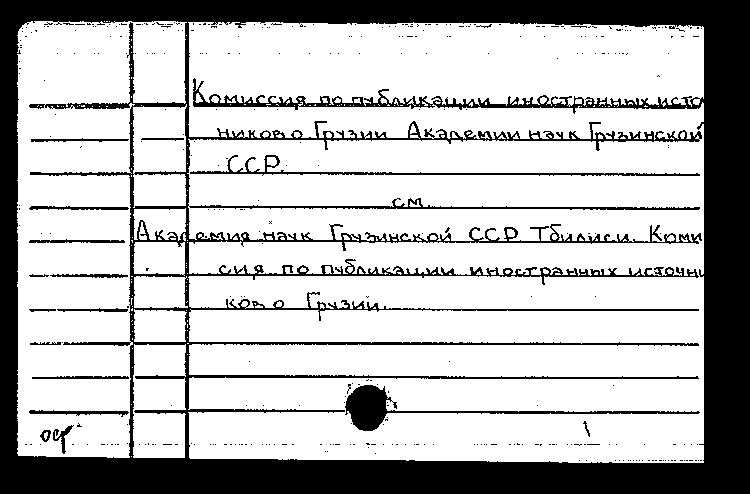 Комиссия по публикации иностранных исто
ников о Грузии Академии наук Грузинской
ССР.
см.
Академия наук Грузинской ССР Тбилиси. Коми
сия по публикации иностранных источни
ков о Грузии.